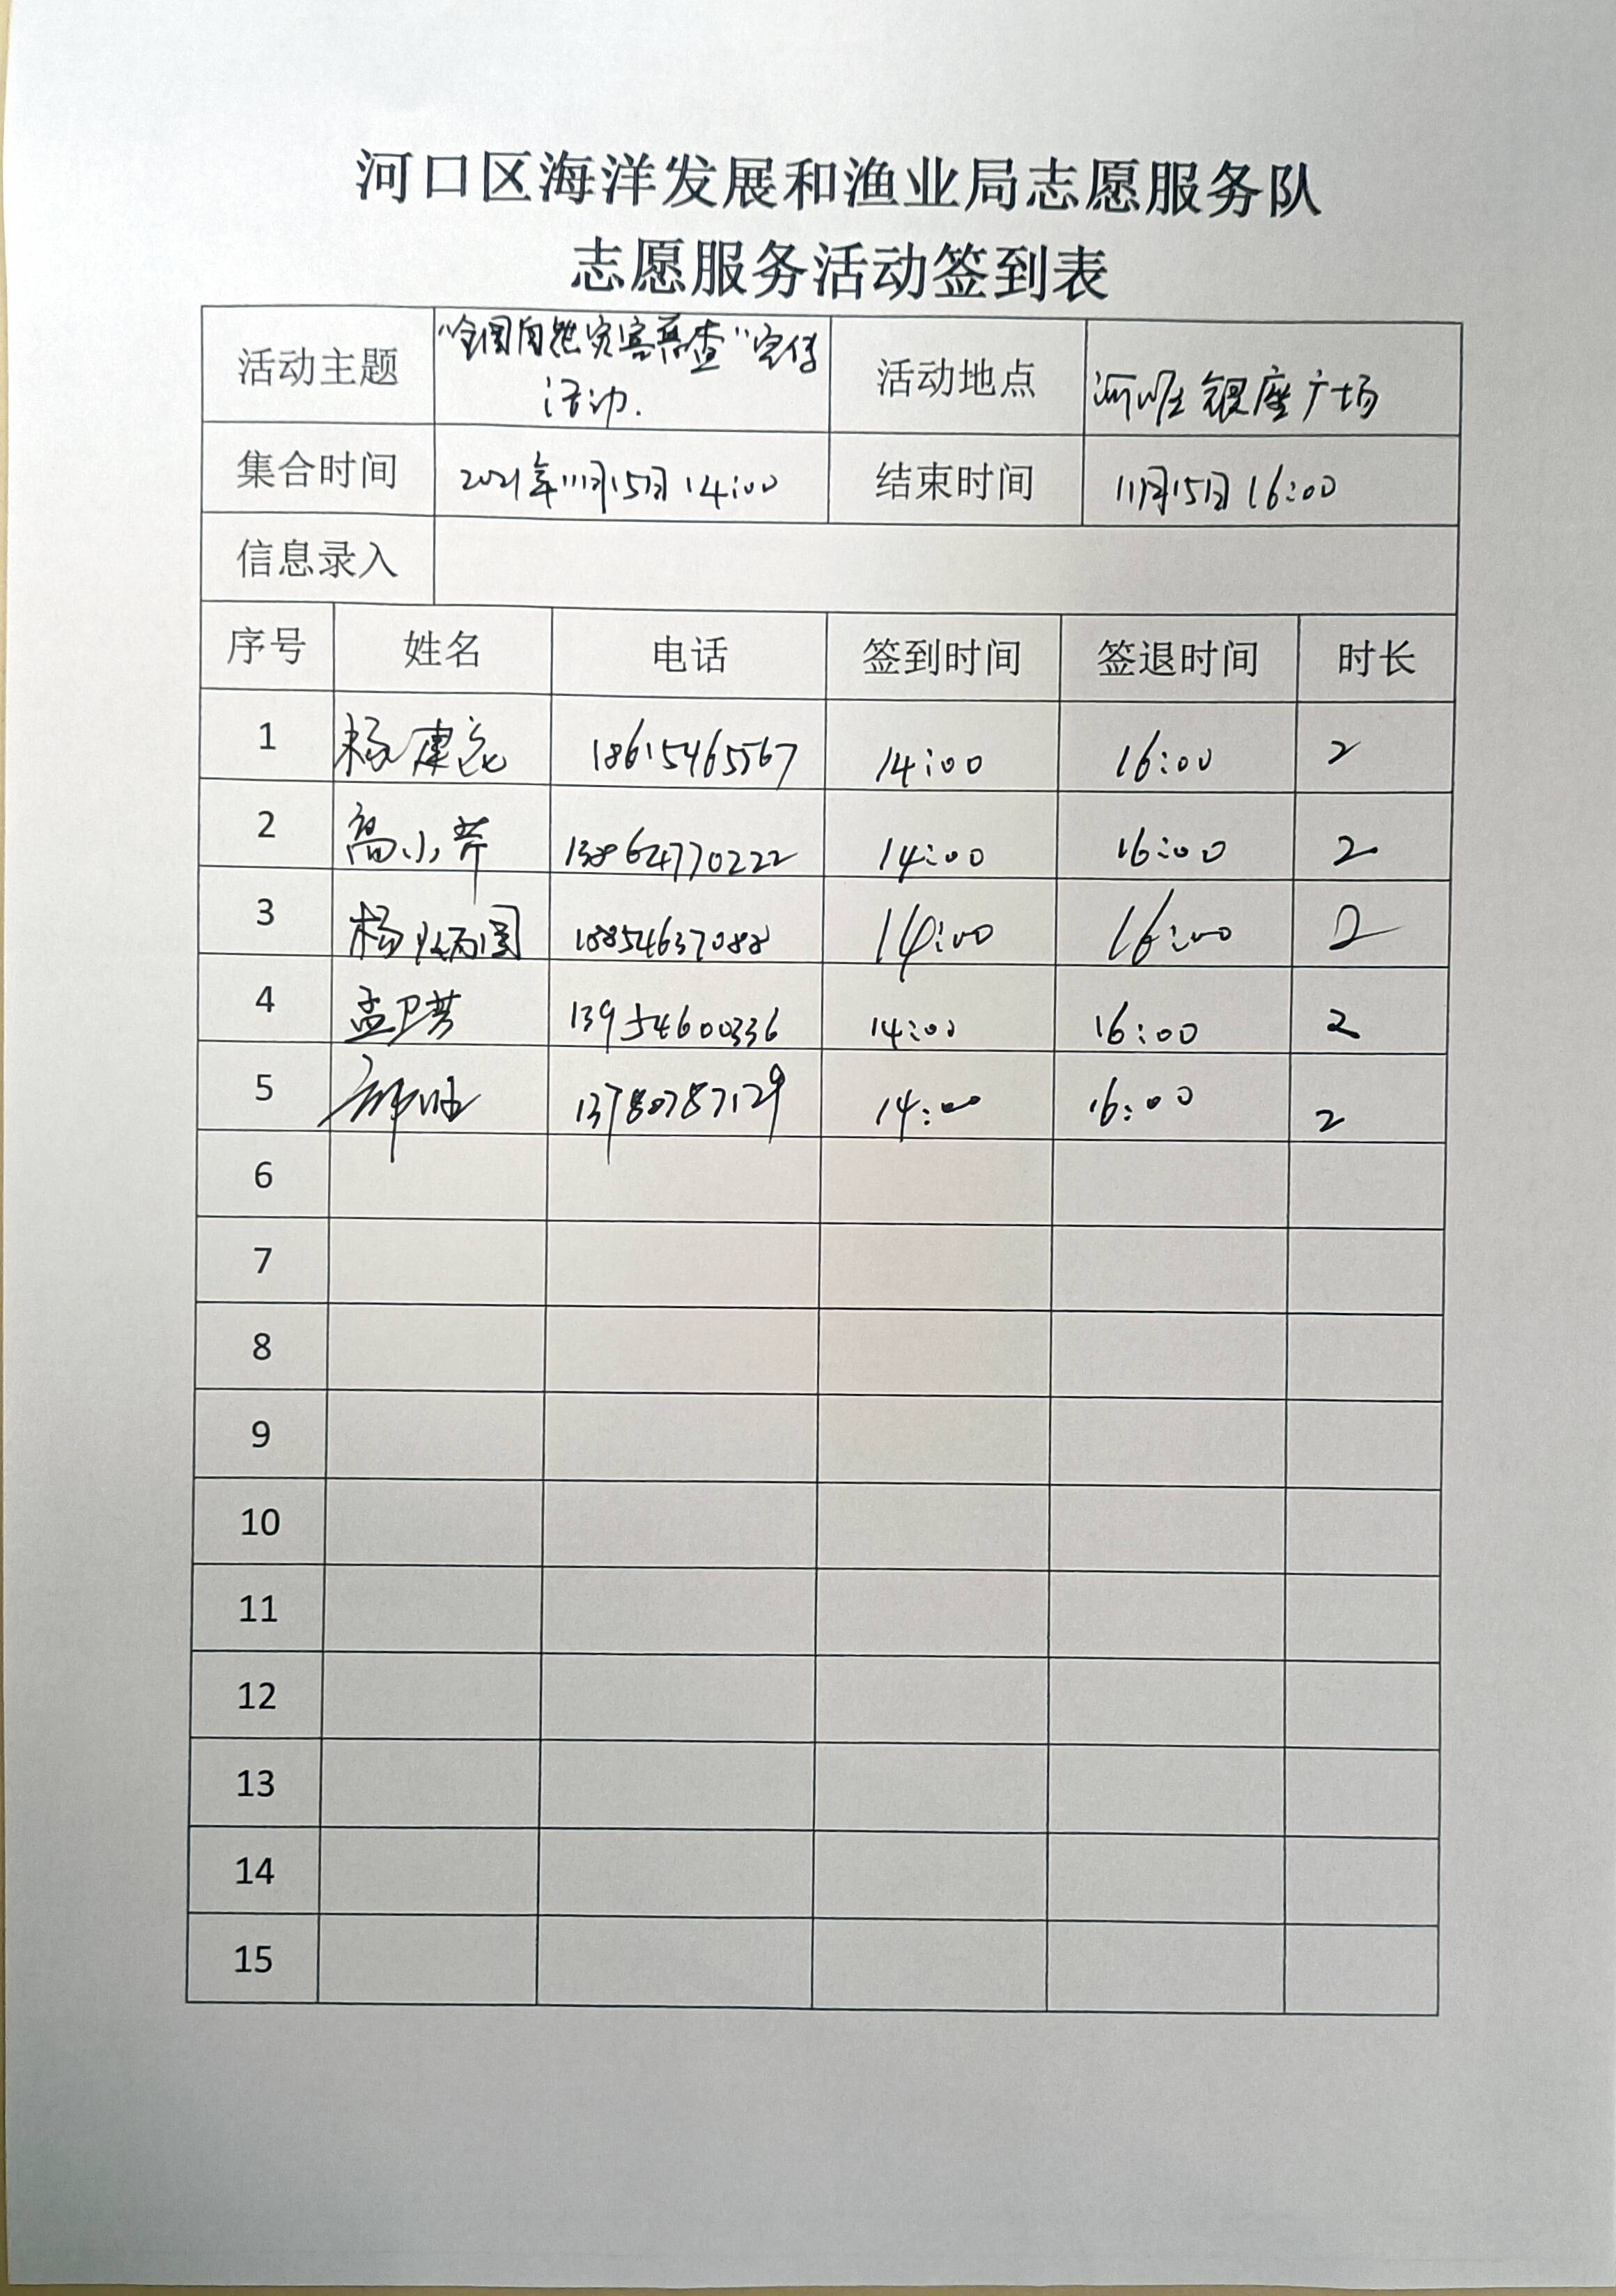 河口区海洋发展和渔业局志愿服务队
志愿服务活动签到表
活动主题 "全国自然灾害普查"宣传活动. 活动地点 河口区银座广场
集合时间 2021年11月15日14:00 结束时间 11月15日16:00
信息录入
序号 姓名 电话 签到时间 签退时间 时长
1 杨建 18615465567 14:00 16:00 2
2 高小芹 13864770222 14:00 16:00 2
3 杨炳国 18854637088 14:00 16:00 2
4 孟卫芳 13954600336 14:00 16:00 2
5 13780787129 14:00 16:00 2
6
7
8
9
10
11
12
13
14
15